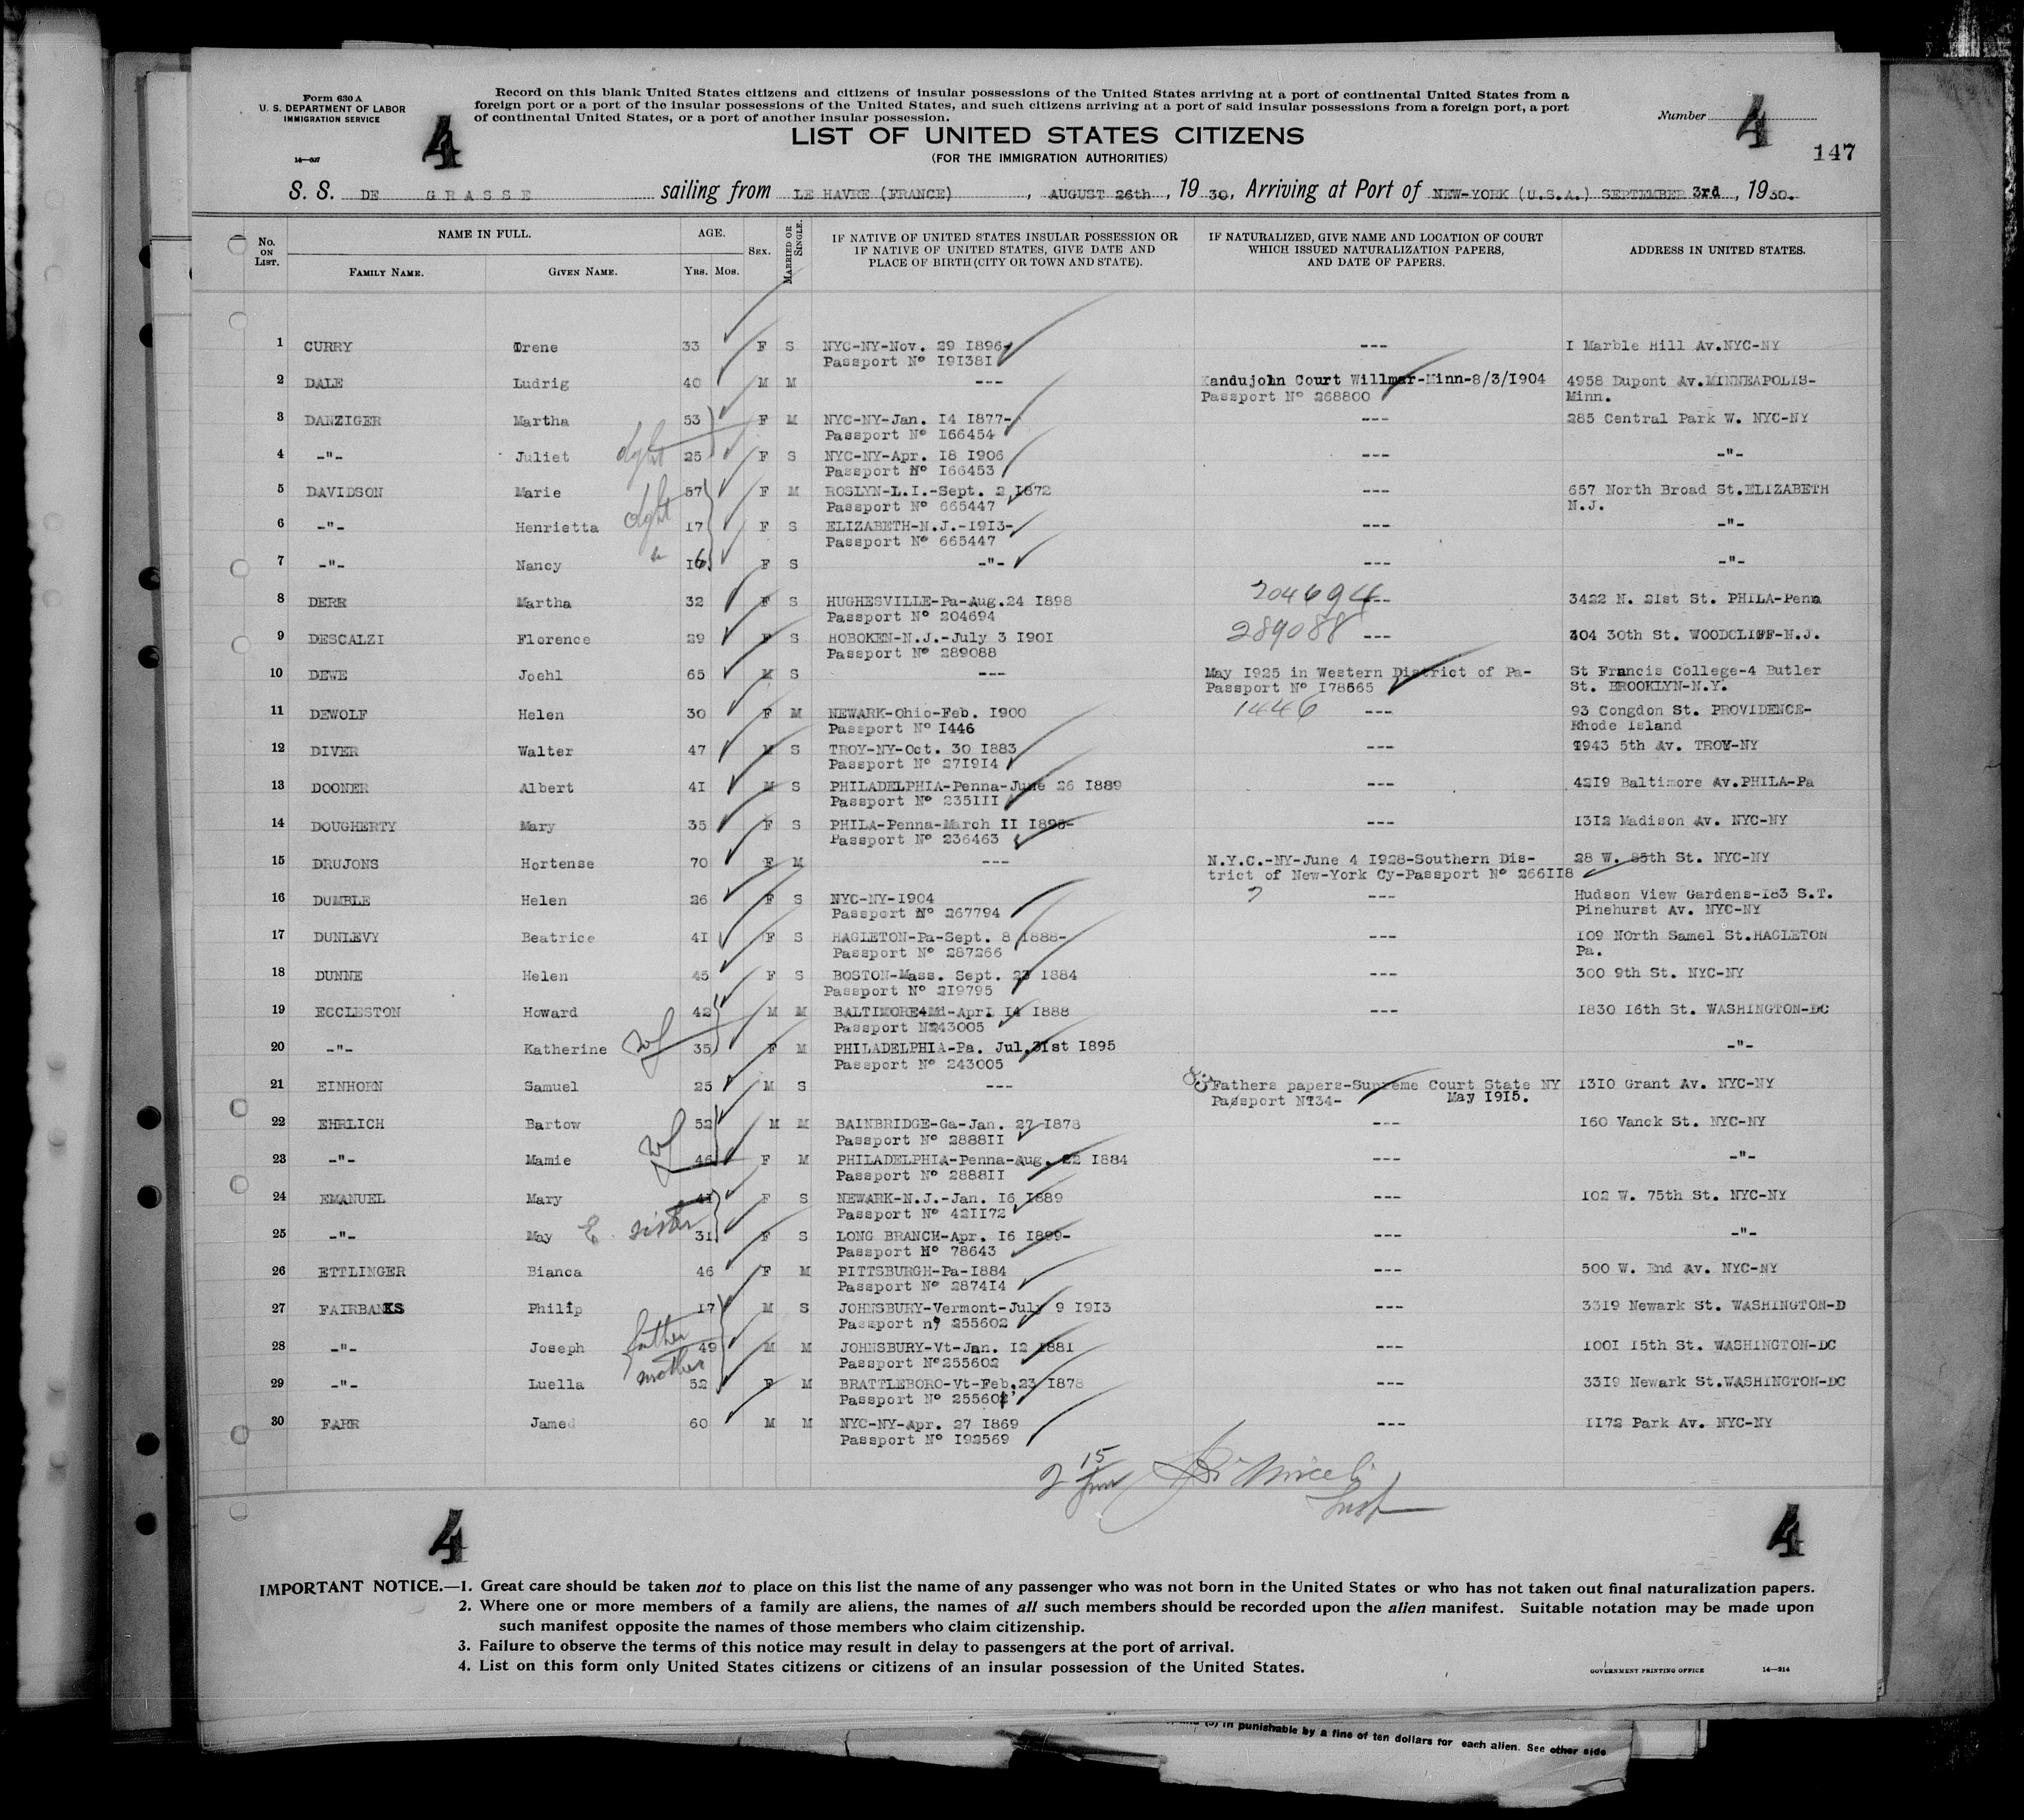 Form 630 A
U. S. DEPARTMENT OF LABOR
IMMIGRATION SERVICE
14—307
4
Record on this blank United States citizens and citizens of insular possessions of the United States arriving at a port of continental United States from a
foreign port or a port of the insular possessions of the United States, and such citizens arriving at a port of said insular possessions from a foreign port, a port
of continental United States, or a port of another insular possession.
LIST OF UNITED STATES CITIZENS
(FOR THE IMMIGRATION AUTHORITIES)
Number 4
147
S. S. DE GRASSE sailing from LE HAVRE (FRANCE), AUGUST 26th, 1930, Arriving at Port of NEW-YORK (U.S.A.) SEPTEMBER 3rd, 1930.
No. ON LIST. NAME IN FULL. FAMILY NAME. GIVEN NAME. AGE. YRS. MOS. SEX. MARRIED OR SINGLE.
IF NATIVE OF UNITED STATES INSULAR POSSESSION OR IF NATIVE OF UNITED STATES, GIVE DATE AND PLACE OF BIRTH (CITY OR TOWN AND STATE).
IF NATURALIZED, GIVE NAME AND LOCATION OF COURT WHICH ISSUED NATURALIZATION PAPERS, AND DATE OF PAPERS.
ADDRESS IN UNITED STATES.
1 CURRY Irene 33 F S NYC-NY-Nov. 29 1896- --- I Marble Hill Av.NYC-NY
Passport N° I9I38I
2 DALE Ludrig 40 M M --- Kandujohn Court Willmar-Minn-8/3/I904 4958 Dupont Av.MINNEAPOLIS-
Passport N° 268800 Minn.
3 DANZIGER Martha 53 F M NYC-NY-Jan. I4 I877- --- 285 Central Park W. NYC-NY
Passport N° I66454
4 -"- Juliet dght 25 F S NYC-NY-Apr. I8 I906 --- -"-
Passport N° I66453
5 DAVIDSON Marie 57 F M ROSLYN-L.I.-Sept. 2 I872 --- 657 North Broad St.ELIZABETH
Passport N° 665447 N.J.
6 -"- Henrietta dght I7 F S ELIZABETH-N.J.-I9I3- --- -"-
Passport N° 665447
7 -"- Nancy " I6 F S -"- --- -"-
8 DERR Martha 32 F S HUGHESVILLE-Pa-Aug.24 I898 204694 --- 3422 N. 2Ist St. PHILA-Penn
Passport N° 204694
9 DESCALZI Florence 29 F S HOBOKEN-N.J.-July 3 I90I 289088 --- 404 30th St. WOODCLIFF-N.J.
Passport N° 289088
10 DEWE Joehl 65 M S --- May I925 in Western District of Pa- St Francis College-4 Butler
Passport N° I78565 St. BROOKLYN-N.Y.
11 DEWOLF Helen 30 F M NEWARK-Ohio-Feb. I900 1446 --- 93 Congdon St. PROVIDENCE-
Passport N° I446 Rhode Island
12 DIVER Walter 47 M S TROY-NY-Oct. 30 I883 --- 1943 5th Av. TROY-NY
Passport N° 27I9I4
13 DOONER Albert 4I M S PHILADELPHIA-Penna-June 26 I889 --- 42I9 Baltimore Av.PHILA-Pa
Passport N° 235III
14 DOUGHERTY Mary 35 F S PHILA-Penna-March II I895- --- I3I2 Madison Av. NYC-NY
Passport N° 236463
15 DRUJONS Hortense 70 F M --- N.Y.C.-NY-June 4 I928-Southern Dis- 28 W. 85th St. NYC-NY
trict of New-York Cy-Passport N° 266II8
16 DUMBLE Helen 26 F S NYC-NY-I904 ? --- Hudson View Gardens-I83 S.T.
Passport N° 267794 Pinehurst Av. NYC-NY
17 DUNLEVY Beatrice 4I F S HAGLETON-Pa-Sept. 8 I888- --- I09 NOrth Samel St.HAGLETON
Passport N° 287266 Pa.
18 DUNNE Helen 45 F S BOSTON-Mass. Sept. 23 I884 --- 300 9th St. NYC-NY
Passport N° 2I9795
19 ECCLESTON Howard 42 M M BALTIMORE4Md-Aprl I4 I888 --- I830 I6th St. WASHINGTON-DC
Passport N243005
20 -"- Katherine wf 35 F M PHILADELPHIA-Pa. Jul.3Ist I895 -"-
Passport N° 243005
21 EINHORN Samuel 25 M S --- Fathers papers-Supreme Court State NY I3I0 Grant Av. NYC-NY
Passport N134- May I9I5.
22 EHRLICH Bartow 52 M M BAINBRIDGE-Ga-Jan. 27 I878 --- I60 Vanck St. NYC-NY
Passport N° 2888II
23 -"- Mamie wf 46 F M PHILADELPHIA-Penna-Aug. 22 I884 --- -"-
Passport N° 2888II
24 EMANUEL Mary 4I F S NEWARK-N.J.-Jan. I6 I889 --- I02 W. 75th St. NYC-NY
Passport N° 42II72
25 -"- May E. sister 3I F S LONG BRANCH-Apr. I6 I899- --- -"-
Passport N° 78643
26 ETTLINGER Bianca 46 F M PITTSBURGH-Pa-I884 --- 500 W. End Av. NYC-NY
Passport N° 2874I4
27 FAIRBANKS Philip I7 M S JOHNSBURY-Vermont-July 9 I9I3 --- 33I9 Newark St. WASHINGTON-D
Passport n° 255602
28 -"- Joseph father 49 M M JOHNSBURY-Vt-Jan. I2 I88I --- I00I I5th St. WASHINGTON-DC
Passport N°255602
29 -"- Luella mother 52 F M BRATTLEBORO-Vt-Feb.23 I878 --- 33I9 Newark St.WASHINGTON-DC
Passport N° 255602
30 FARR Jamed 60 M M NYC-NY-Apr. 27 I869 --- II72 Park Av. NYC-NY
Passport N° I92569
15
2
Insp
4
4
IMPORTANT NOTICE.—1. Great care should be taken not to place on this list the name of any passenger who was not born in the United States or who has not taken out final naturalization papers.
2. Where one or more members of a family are aliens, the names of all such members should be recorded upon the alien manifest. Suitable notation may be made upon
such manifest opposite the names of those members who claim citizenship.
3. Failure to observe the terms of this notice may result in delay to passengers at the port of arrival.
4. List on this form only United States citizens or citizens of an insular possession of the United States.
GOVERNMENT PRINTING OFFICE 14—214
in punishable by a fine of ten dollars for each alien. See other side